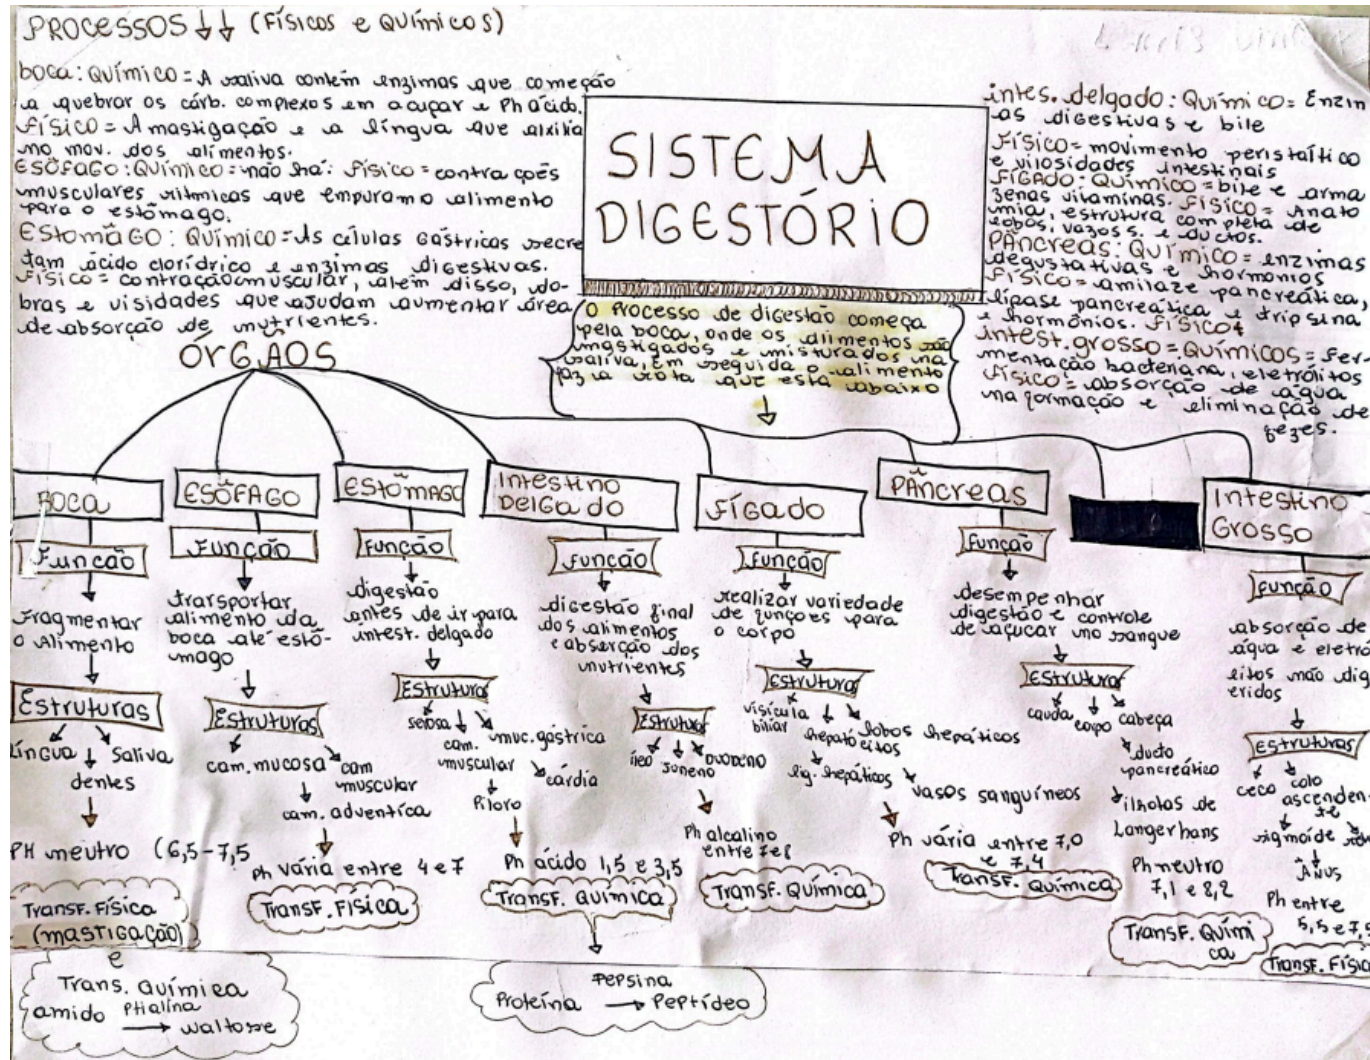 PROCESSOS ↓↓ (Físicos e Químicos)
boca: Químico = A saliva contém enzimas que começão
a quebrar os cárb. complexos em açuçar e Ph ácido.
Físico = A mastigação e a língua que alxilia
no mov. dos alimentos.
ESÔFAGO: Químico = não há: Físico = contrações
musculares rítmicas que empuram o alimento
para o estômago.
ESTOMÂGO: Químico = As células Gástricas secre
tam ácido clorídrico e enzimas digestivas.
Físico = contração muscular, além disso, do-
bras e visidades que ajudam aumentar área
de absorção de nutrientes.
SISTEMA
DIGESTÓRIO
O Processo de digestão começa
pela boca, onde os alimentos são
mastigados e misturados na
saliva, em seguida o alimento
faz a rota que está abaixo
intes. delgado: Químico = Enzim
as digestivas e bile
Físico = movimento peristaítico
e vilosidades intestinais
FÍGADO: Químico = bile e arma
zenas vitaminas. Físico = Anato
mia, estrutura completa de
lobos, vazos s. e ductos.
PÂncreas: Químico = enzimas
degustativas e hormonios
Físico = amilaze pancreática,
lipase pancreática e tripsina
e hormônios. Físico
intest. grosso = Químicos = Fer-
mentação bacteriana, eletrólitos
Físico = absorção de água
na formação e eliminação de
fezes.
ÓRGAOS
BOCA
Funcão
Fragmentar
o alimento
Estruturas
Língua
Saliva
dentes
PH neutro (6,5-7,5
Transf. Física
(MASTIGAÇÃO)
e
Trans. Química
amido Ptialina → waltose
ESÔFAGO
Função
transportar
alimento da
boca até estô-
mago
Estruturas
cam. mucosa
cam
muscular
cam. adventíca
Ph vária entre 4 e 7
Transf. Física
EStômAGO
Função
digestão
antes de ir para
intest. delgado
Estrutura
serosa
cam.
muscular
muc. gástrica
cárdia
Piloro
Ph ácido 1,5 e 3,5
Transf. Química
Pepsina
Proteína → Peptídeo
Intestino
DelGado
Função
digestão final
dos alimentos
e abserção dos
nutrientes
Estrutura
íleo
Juneno
Duodeno
Ph alcalino
entre 7e8
Transf. Química
FíGado
Função
realizar variedade
de funções para
o corpo
Estrutura
visícula
biliar
hepatócitos
lobos hepáticos
lig. hepáticos
vasos sanguíneos
Ph vária entre 7,0
e 7,4
Transf. Química
PÂncreas
Função
desempenhar
digestão e controle
de açucar no sangue
Estrutura
cauda
corpo
cabeça
ducto
pancreático
ilhotas de
Langerhans
Ph neutro
7,1 e 8,2
Transf. Quími
ca
Intestino
Grosso
Função
absorção de
água e eletró
litos não dig
eridos
Estruturas
ceco
colo
ascenden-
te
sigmoíde
Ânus
Ph entre
5,5 e 7,5
Transf. Física